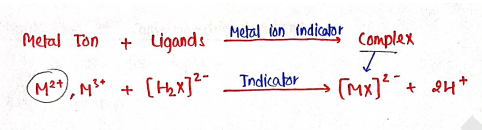 Metal Ion + Ligands Metal ion indicator Complex
M²⁺, M³⁺ + [H₂X]²⁻ Indicator → [MX]²⁻ + 2H⁺